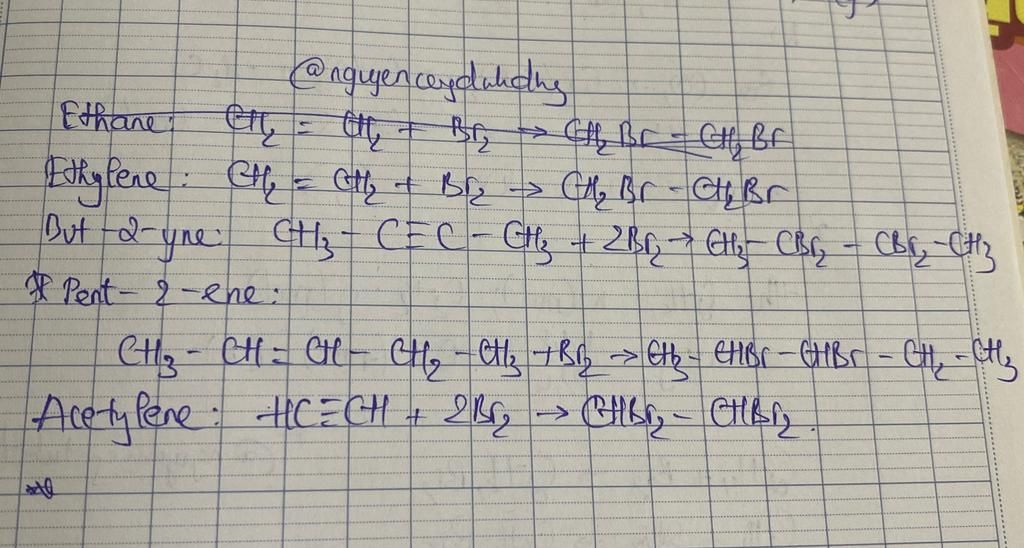 Ethane: CH₂ = CH₂ + Br₂ → CH₂Br = CH₂Br
Ethylene: CH₂ = CH₂ + Br₂ → CH₂Br - CH₂Br
But-2-yne: CH₃ - C≡C - CH₃ + 2Br₂ → CH₃ - CBr₂ - CBr₂ - CH₃
* Pent-2-ene:
CH₃ - CH = CH - CH₂ - CH₃ + Br₂ → CH₃ - CHBr - CHBr - CH₂ - CH₃
Acetylene: HC≡CH + 2Br₂ → CHBr₂ - CHBr₂.